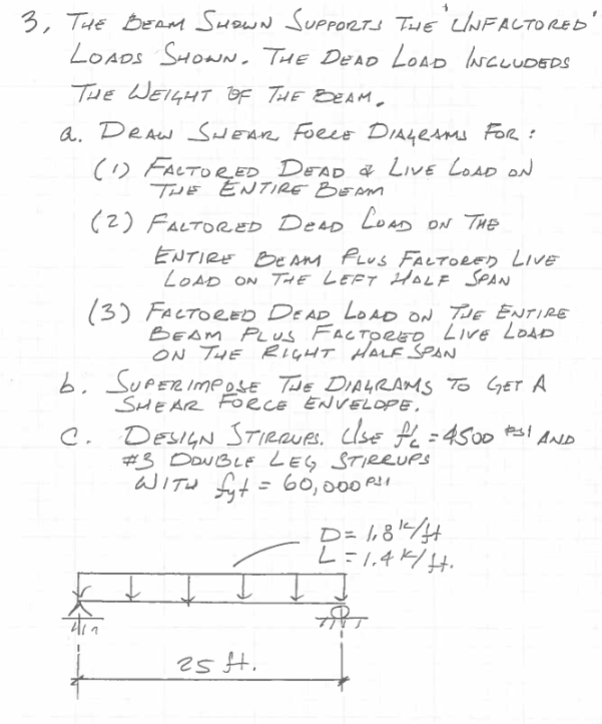 3, THE BEAM SHOWN SUPPORTS THE 'UNFACTORED'
LOADS SHOWN. THE DEAD LOAD INCLUDEDS
THE WEIGHT OF THE BEAM.
a. DRAW SHEAR FORCE DIAGRAMS FOR :
(1) FACTORED DEAD & LIVE LOAD ON
THE ENTIRE BEAM
(2) FACTORED DEAD LOAD ON THE
ENTIRE BEAM PLUS FACTORED LIVE
LOAD ON THE LEFT HALF SPAN
(3) FACTORED DEAD LOAD ON THE ENTIRE
BEAM PLUS FACTORED LIVE LOAD
ON THE RIGHT HALF SPAN
b. SUPERIMPOSE THE DIAGRAMS TO GET A
SHEAR FORCE ENVELOPE.
C. DESIGN STIRRUPS. USE f'c = 4500 PSI AND
#3 DOUBLE LEG STIRRUPS
WITH fyt = 60,000 PSI
D= 1.8 k/ft
L = 1.4 k/ft.
25 ft.